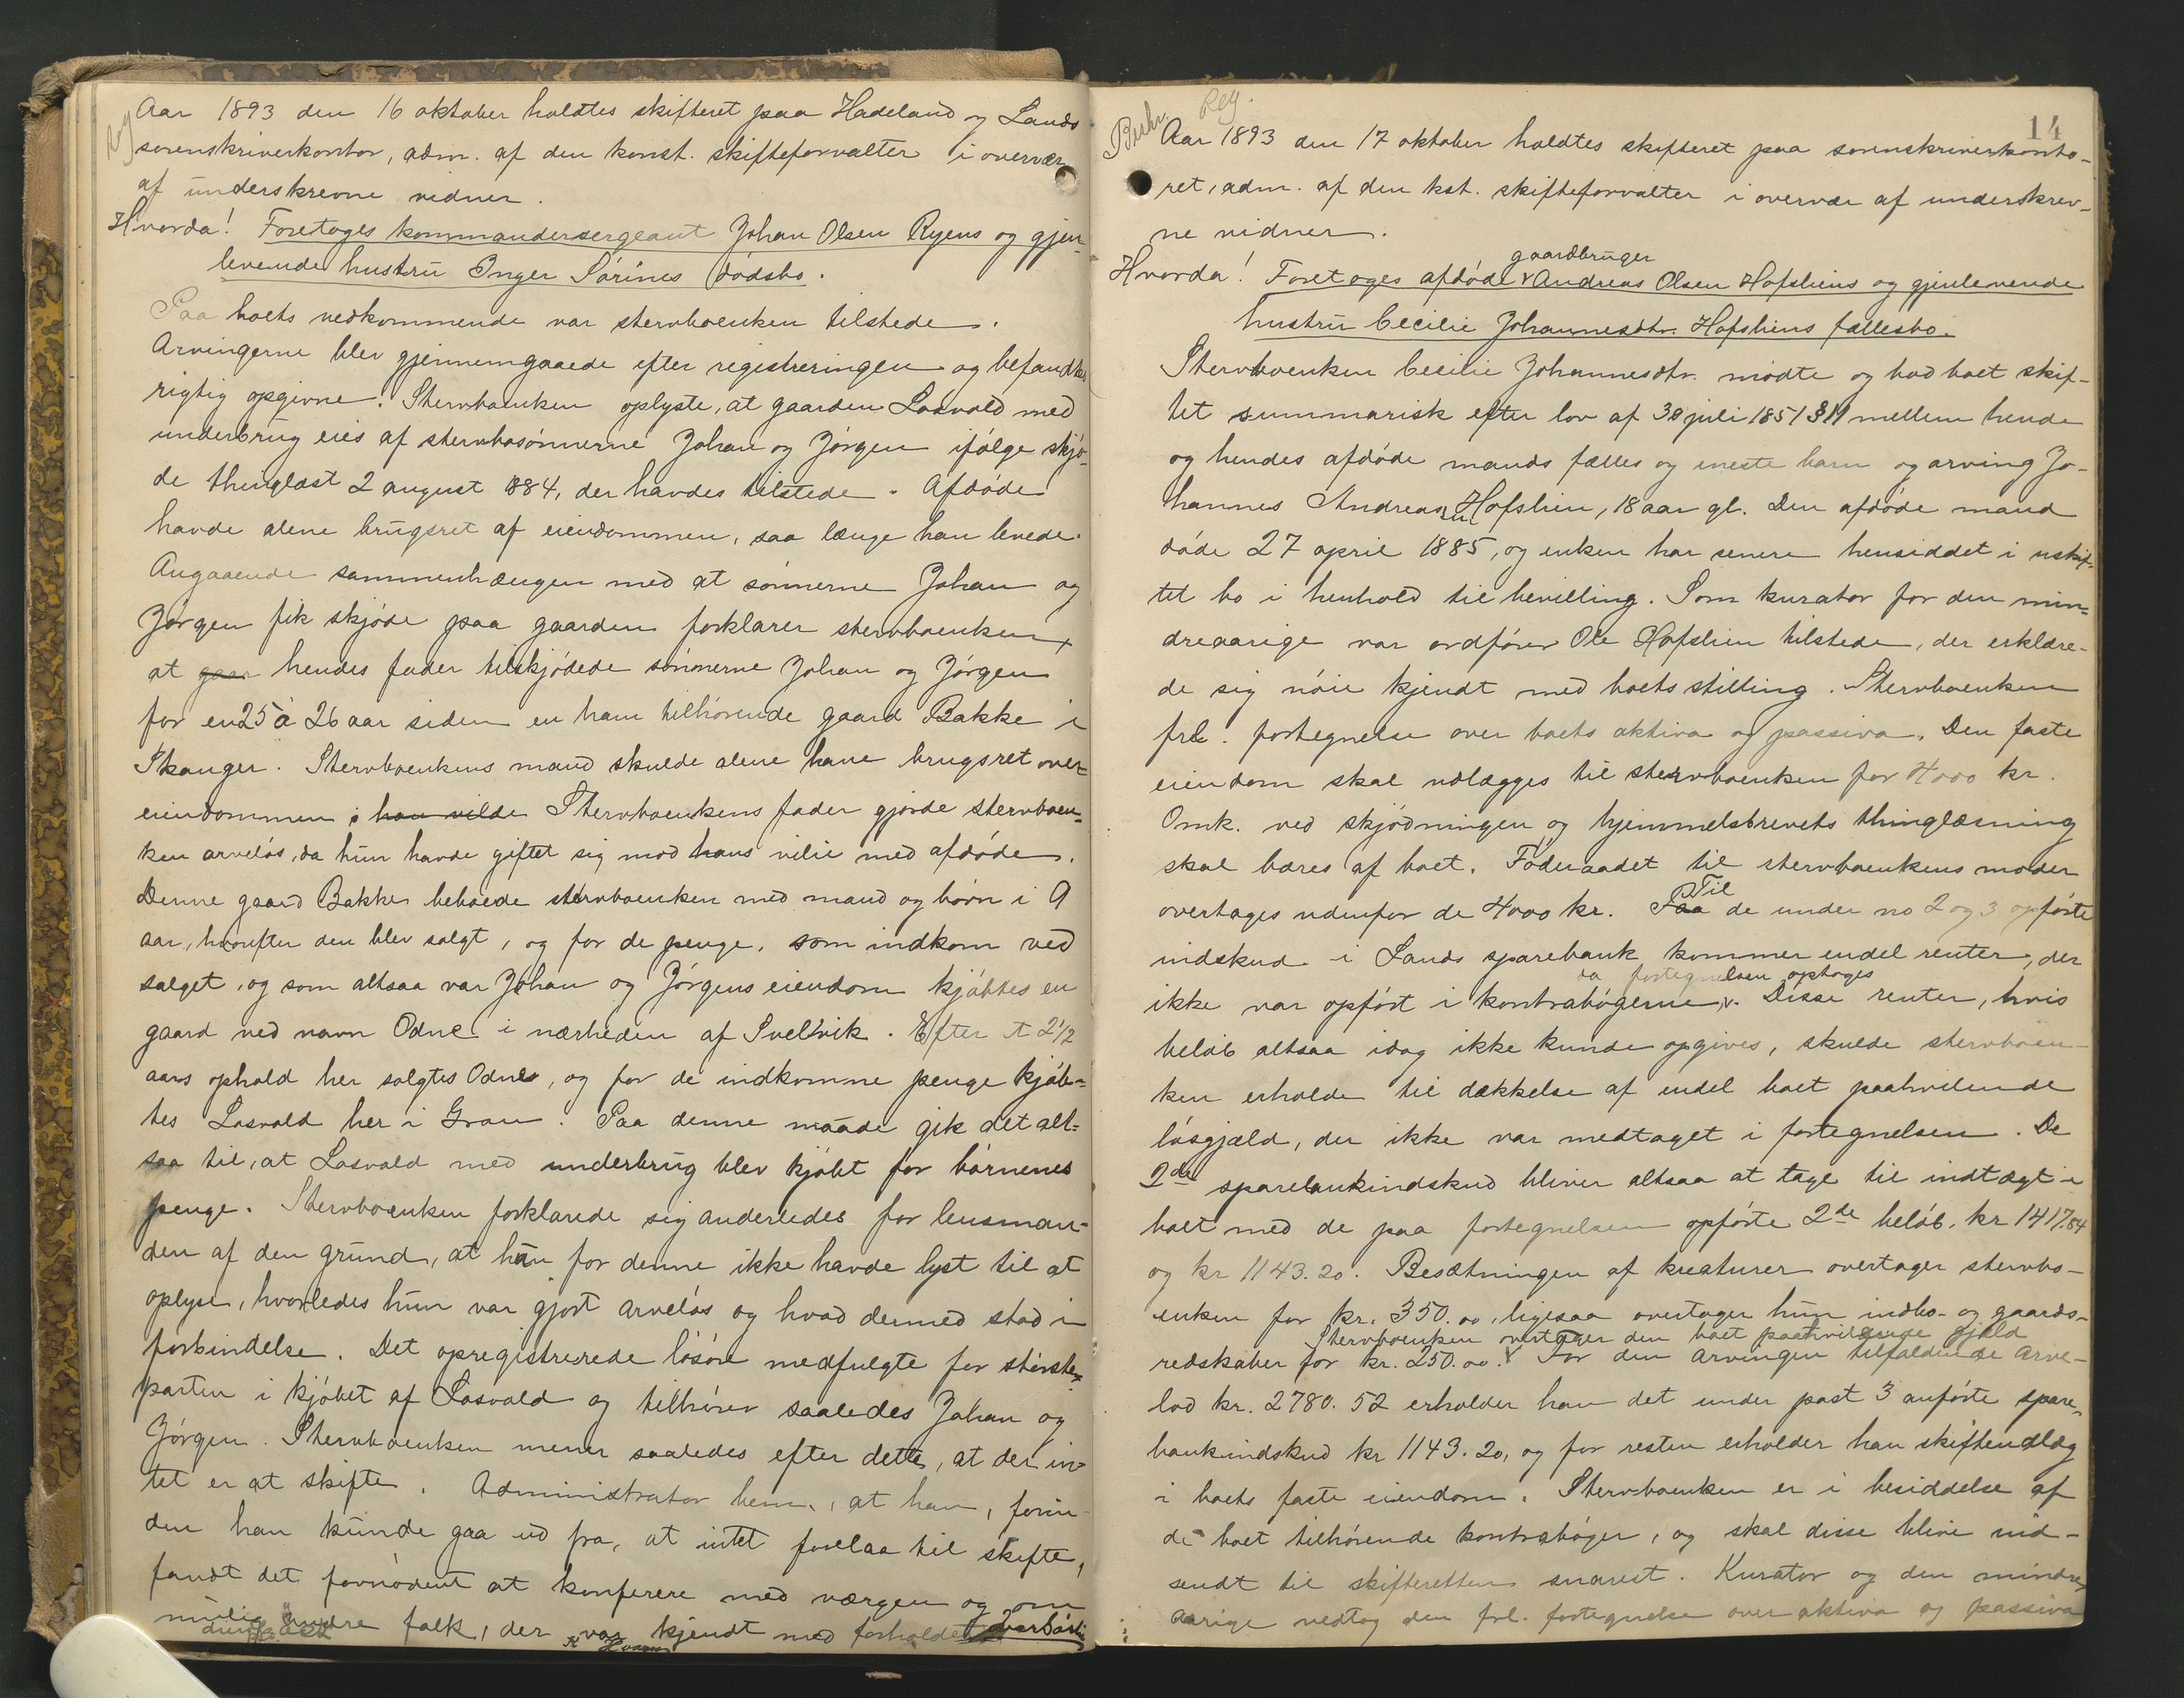 Reg
Aar 1893 den 16 oktober holdtes skifteret paa Hadeland og Lands
sorenskriverkontor, adm. af den konst. skifteforvalter i overvær
af underskrevne vidner.
Hvorda! Foretoges kommandersergeant Johan Olsen Ryens og gjen-
levende hustru Inger Sørines dødsbo.
Paa boets vedkommende var stervboenken tilstede.
Arvingerne blev gjennemgaaede efter registreringen og befandtes
rigtig opgivne. Stervboenken oplyste, at gaarden Losvold med
underbrug eies af stervbosønnerne Johan og Jørgen ifølge skjø-
de thinglæst 2 august 1884, der havdes tilstede. Afdøde
havde alene brugsret af eiendommen, saa længe han levede.
Angaaende sammenhængen med at sønnerne Johan og
Jørgen fik skjøde paa gaarden forklarer stervboenken,
at gaar hendes fader tilskjødede sønnerne Johan og Jørgen
for en 25 à 26 aar siden en ham tilhørende gaard Bakke i
Skouger. Stervboenkens mand skulde alene have brugsret over
eiendommen; han vilde Stervboenkens fader gjorde stervboen-
ken arveløs, da hun havde giftet sig mod hans vilie med afdøde.
Denne gaard Bakke beboede stervboenken med mand og børn i 9
aar, hvorefter den blev solgt, og for de penge, som indkom ved
salget, og som altsaa var Johan og Jørgens eiendom kjøbtes en
gaard ved navn Odne i nærheden af Svelvik. Efter et 2 1/2
aars ophold her solgtes Odne, og for de indkomne penge kjøb-
tes Losvold her i Gran. Paa denne maade gik det alt-
saa til, at Losvold med underbrug blev kjøbt for børnenes
penge. Stervboenken forklarede sig anderledes for lensman-
den af den grund, at hun for denne ikke havde lyst til at
oplyse, hvorledes hun var gjort arveløs og hvad dermed stod i
forbindelse. Det opregistrerede løsøre medfulgte for største-
parten i kjøbet af Losvold og tilhører saaledes Johan og
Jørgen. Stervboenken mener saaledes efter dette, at der in-
tet er at skifte. Administrator bem., at han, forin-
den han kunde gaa ud fra, at intet forelaa til skifte,
fandt det fornødent at konferere med værgen og om
mulig andre folk, der var kjendt med forholdet
14
Beskr. Reg.
Aar 1893 den 17 oktober holdtes skifteret paa sorenskriverkonto-
ret, adm. af den kst. skifteforvalter i overvær af underskrev-
ne vidner.
gaardbruger
Hvorda! Foretoges afdøde Andreas Olsen Hofsliens og gjenlevende
hustru Cecilie Johannesdtr. Hofsliens fællesbo.
Stervboenken Cecilie Johannesdtr. mødte og bad boet skif-
tet summarisk efter lov af 30 juli 1851 § 11 mellem hende
og hendes afdøde mands fælles og eneste barn og arving Jo-
hannes Andreasen Hofslien, 18 aar gl. Den afdøde mand
døde 27 april 1885, og enken har senere hensiddet i uskif-
tet bo i henhold til bevilling. Som kurator for den min-
dreaarige var ordfører Ole Hofslien tilstede, der erklære-
de sig nøie kjendt med boets stilling. Stervboenken
frl. fortegnelse over boets aktiva og passiva. Den faste
eiendom skal udlægges til stervboenken for 4000 kr.
Omk. ved skjødningen og hjemmelsbrevets thinglæsning
skal bæres af boet. Føderaadet til stervboenkens moder
overtages udenfor de 4000 kr. Paa Til de under no 2 og 3 opførte
indskud i Lands sparebank kommer endel renter, der
da fortegnelsen optoges
ikke var opført i kontrabøgerne. Disse renter, hvis
beløb altsaa idag ikke kunde opgives, skulde stervboen-
ken erholde til dækkelse af endel boet paahvilende
løsgjæld, der ikke var medtaget i fortegnelsen. De
2de sparebankindskud bliver altsaa at tage til indtægt i
boet med de paa fortegnelsen opførte 2de beløb, kr 1417.84
og kr 1143.20. Besætningen af kreaturer overtager stervbo-
enken for kr. 350.00, ligesaa overtager hun indbo- og gaards-
Stervboenken overtager den boet paahvilende gjæld
redskaber for kr. 250.00. For den arvingen tilfaldende arve-
lod kr. 2780.52 erholder han det under post 3 anførte spare-
bankindskud kr 1143.20, og for resten erholder han skifteudlæg
i boets faste eiendom. Stervboenken er i besiddelse af
de boet tilhørende kontrabøger, og skal disse blive ind-
sendt til skifteretten snarest. Kurator og den mindre-
aarige vedtog den frl. fortegnelse over aktiva og passiva